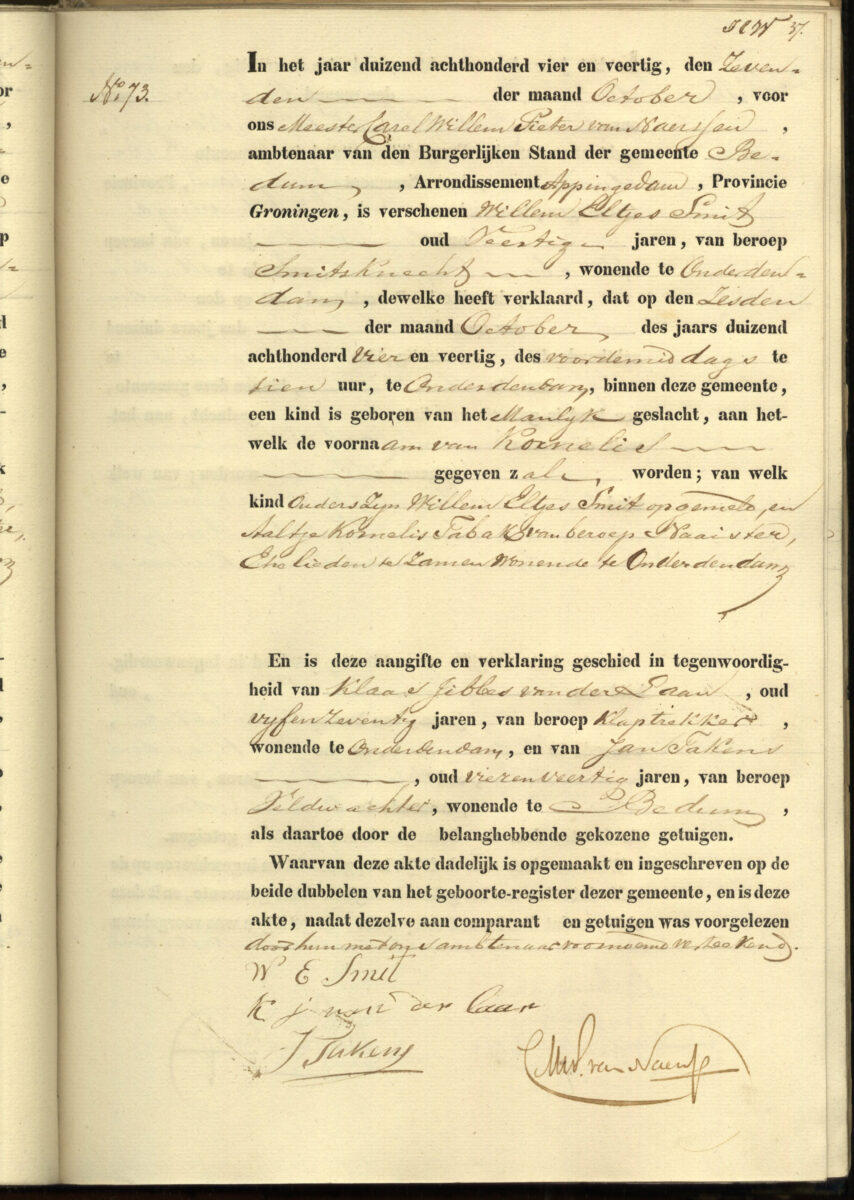 37.
No. 73.
In het jaar duizend achthonderd vier en veertig, den Zeven-
den der maand October, voor
ons Meester Carel Willem Pieter van Naerssen,
ambtenaar van den Burgerlijken Stand der gemeente Be-
dum, Arrondissement Appingedam, Provincie
Groningen, is verschenen Willem Eltjes Smit
oud Veertig jaren, van beroep
Smitsknecht, wonende te Onderden-
dam, dewelke heeft verklaard, dat op den Zesden
der maand October des jaars duizend
achthonderd Vier en veertig, des voordemiddags te
tien uur, te Onderdendam, binnen deze gemeente,
een kind is geboren van het Manlyk geslacht, aan het-
welk de voornaam van Kornelis
gegeven zal worden; van welk
kind Ouders Zyn Willem Eltjes Smit opgemeld, en
Aaltje Kornelis Tabak, van beroep Naaister,
Ehelieden te Zamen Wonende te Onderdendam
En is deze aangifte en verklaring geschied in tegenwoordig-
heid van Klaas Jibbes van der Laan, oud
vyfenZeventig jaren, van beroep Klaptrekker,
wonende te Onderdendam, en van Jan Takens
, oud vierenveertig jaren, van beroep
Veldwachter, wonende te Bedum,
als daartoe door de belanghebbende gekozene getuigen.
Waarvan deze akte dadelijk is opgemaakt en ingeschreven op de
beide dubbelen van het geboorte-register dezer gemeente, en is deze
akte, nadat dezelve aan comparant en getuigen was voorgelezen
door hun met ons ambtenaar voornoemd verteekend.
W E Smit
K J van der Laan
J Takens
CWP. van Naerssen